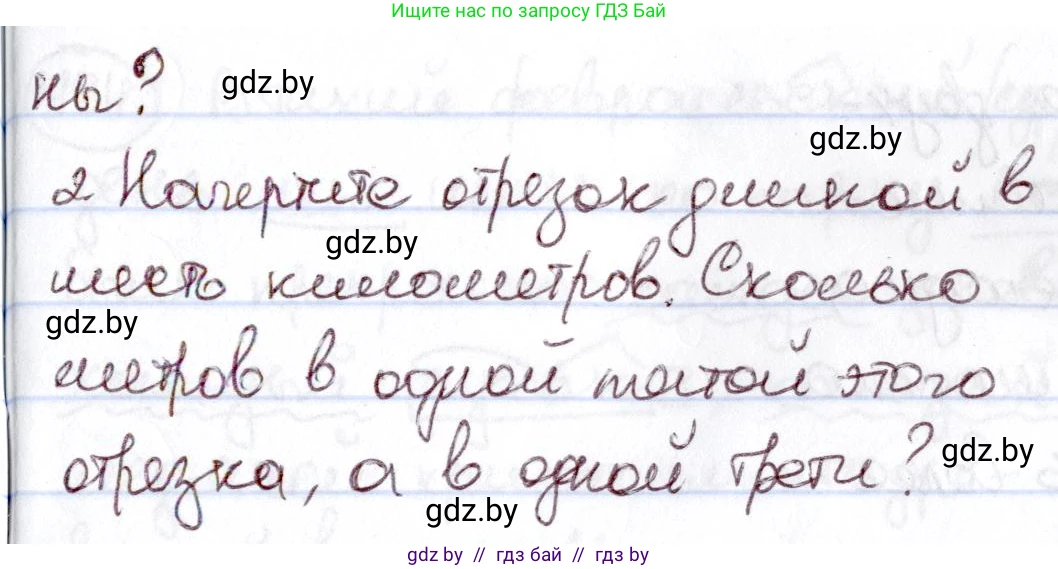 Ищите нас по запросу ГДЗ Бай
ны?
gdz.by
gdz.by
2 Начертите отрезок длиной в
gdz.by
шесть километров. Сколько
gdz.by
метров в одной пятой этого
отрезка, а в одной трети?
gdz.by
gdz.by
gdz.by // гдз бай // гдз by